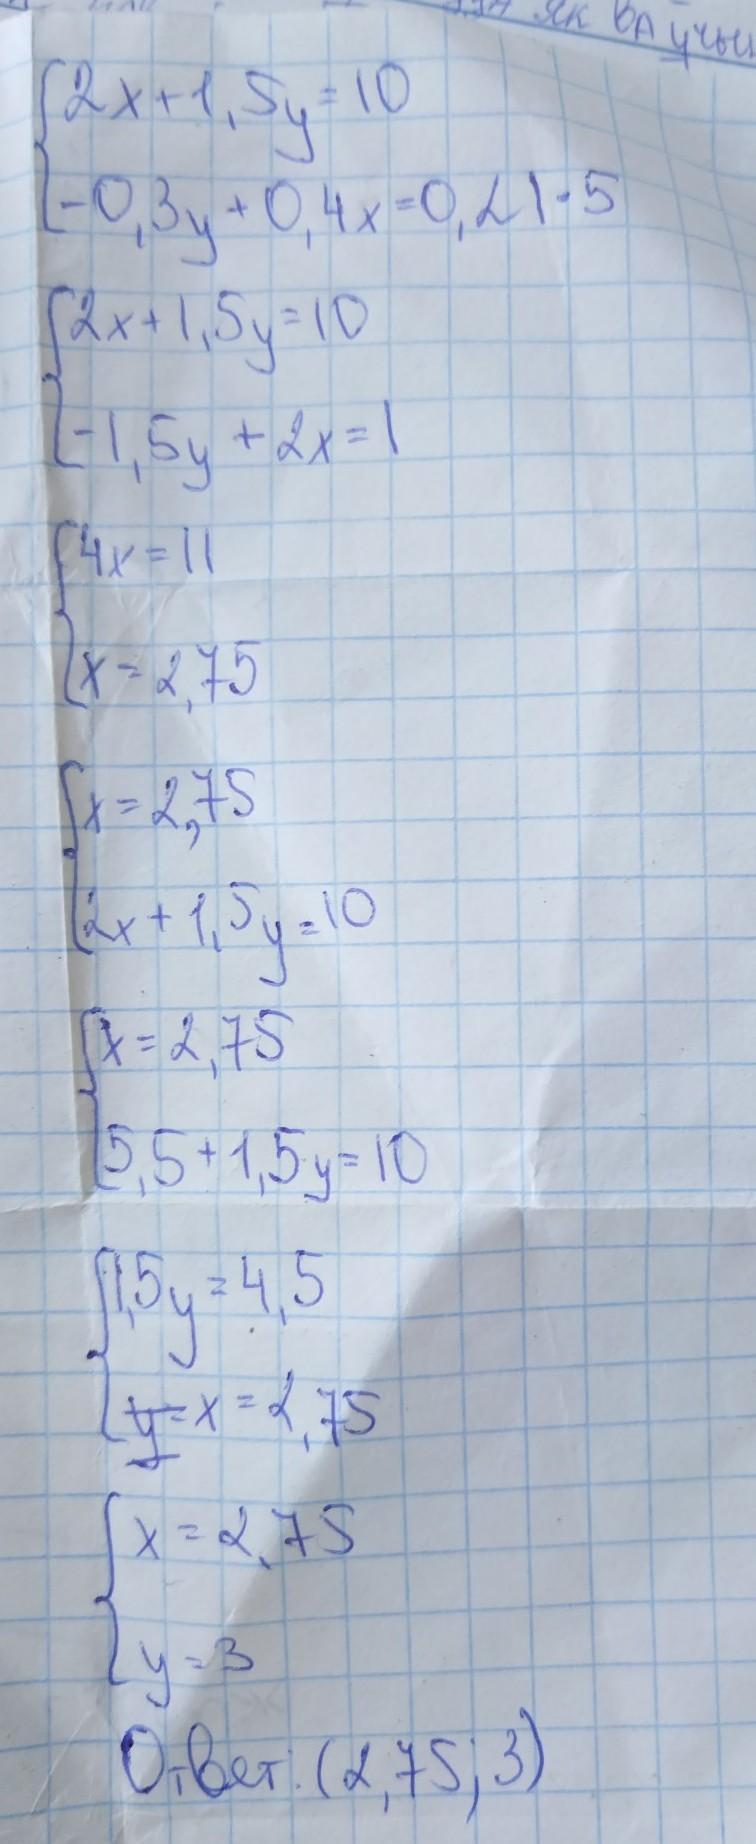 як вл учы
2x+1,5y=10
-0,3y+0,4x=0,2|·5
2x+1,5y=10
-1,5y+2x=1
4x=11
x=2,75
x=2,75
2x+1,5y=10
x=2,75
5,5+1,5y=10
1,5y=4,5
x=2,75
x=2,75
y=3
Ответ: (2,75; 3)